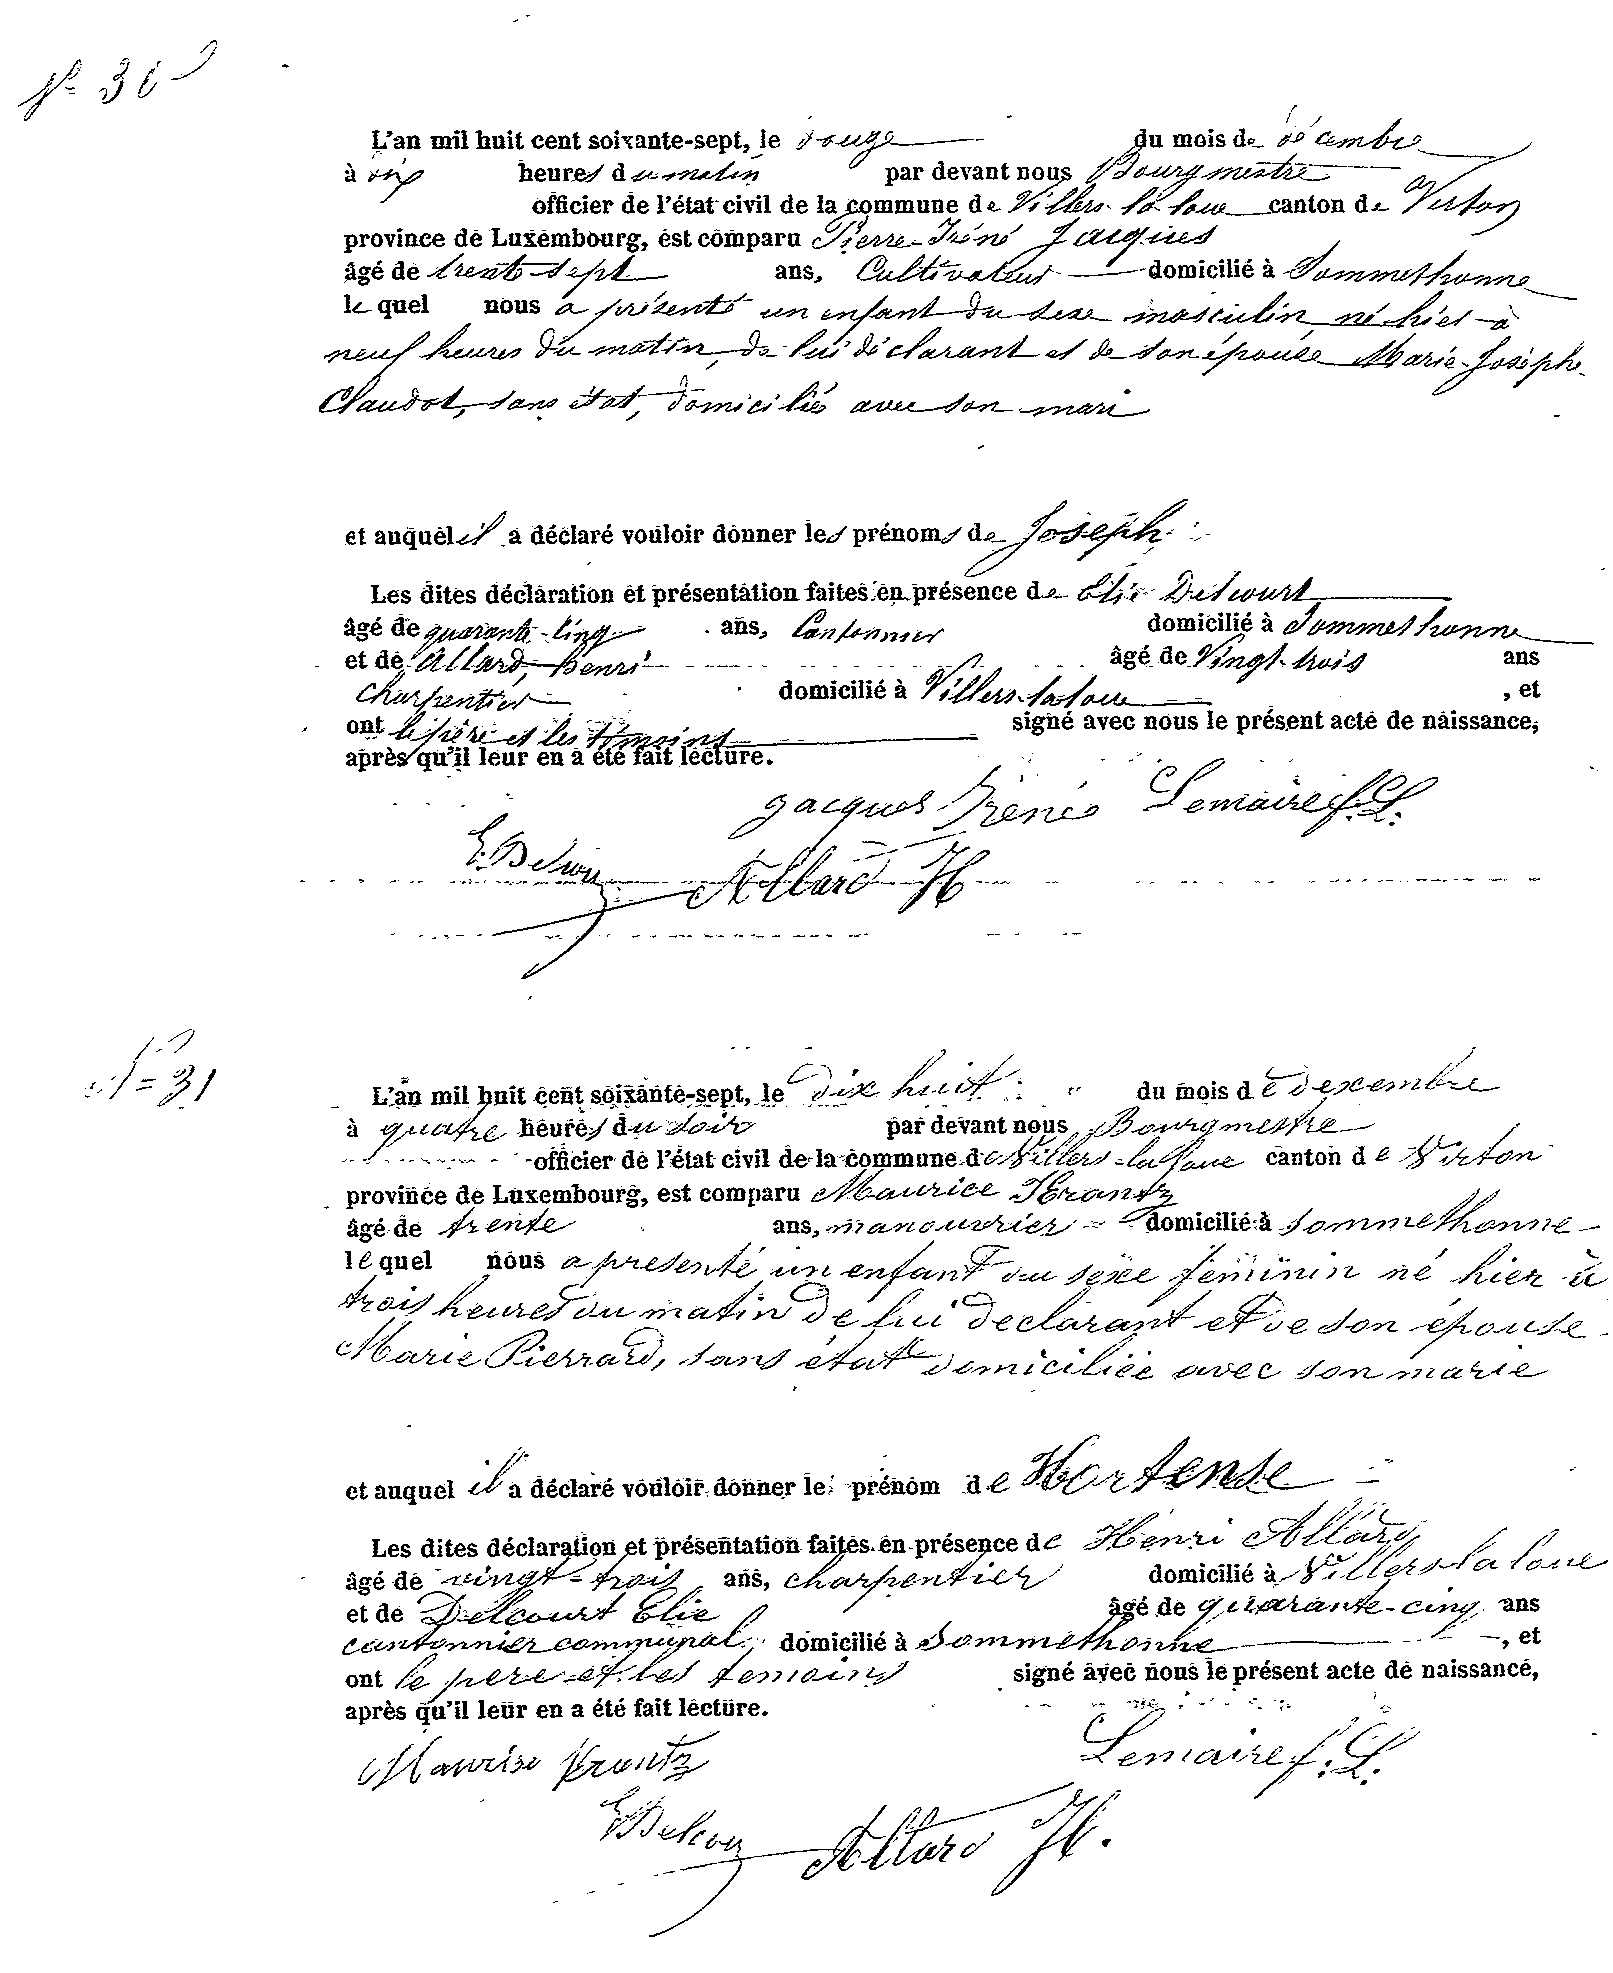 N° 30
L'an mil huit cent soixante-sept, le douze du mois de décembre
à dix heures du matin par devant nous Bourgmestre
officier de l'état civil de la commune de Villers-la-loue canton de Virton
province de Luxembourg, est comparu Pierre-Iréné Jacques
âgé de trente-sept ans, Cultivateur domicilié à Sommethonne
lequel nous a présenté un enfant du sexe masculin né hier à
neuf heures du matin, de lui déclarant et de son épouse Marie-Josèphe
Claudot, sans état, domiciliée avec son mari
et auquel il a déclaré vouloir donner les prénoms de Joseph
Les dites déclaration et présentation faites en présence de Elie Delcourt
âgé de quarante-cinq ans, Cantonnier domicilié à Sommethonne
et de Allard, Henri âgé de Vingt-trois ans
charpentier domicilié à Villers-la-loue , et
ont le père et les témoins signé avec nous le présent acte de naissance,
après qu'il leur en a été fait lecture.
Jacques Irénée Lemaire f. L.
E. Delcour Allard H
N° 31
L'an mil huit cent soixante-sept, le dix huit du mois de dexcembre
à quatre heures du soir par devant nous Bourgmestre
officier de l'état civil de la commune de Villers-la-loue canton de Virton
province de Luxembourg, est comparu Maurice Krantz
âgé de trente ans, manouvrier domicilié à Sommethonne
lequel nous a presenté un enfant du sexe féminin né hier à
trois heures du matin de lui declarant et de son épouse
Marie Pierrard, sans état domiciliée avec son marie
et auquel il a déclaré vouloir donner le prénom de Hortense
Les dites déclaration et présentation faites en présence de Henri Allard
âgé de vingt-trois ans, charpentier domicilié à Villers la loue
et de Delcourt Elie âgé de quarante-cinq ans
cantonnier communal, domicilié à Sommethonne , et
ont le pere et les temoins signé avec nous le présent acte de naissance,
après qu'il leur en a été fait lecture.
Maurise Krantz Lemaire f. L.
E Delcour Allard H.